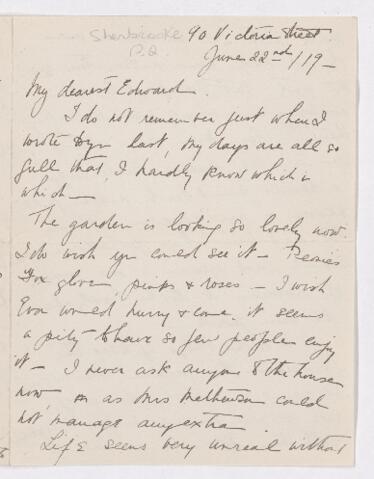 Sherbrooke
P.Q.
90 Victoria Street.
June 22nd/19-
My dearest Edward.
I do not remember just when I
wrote you last, my days are all so
full that, I hardly know which is
which —
The garden is looking so lovely now.
I do wish you could see it — Peonies
Fox gloves, pinks & roses — I wish
Eva would hurry & come, it seems
a pity to have so few people enjoy
it — I never ask anyone to the house
now, as Mrs Mathewson could
not manage any extra.
Life seems very unreal without